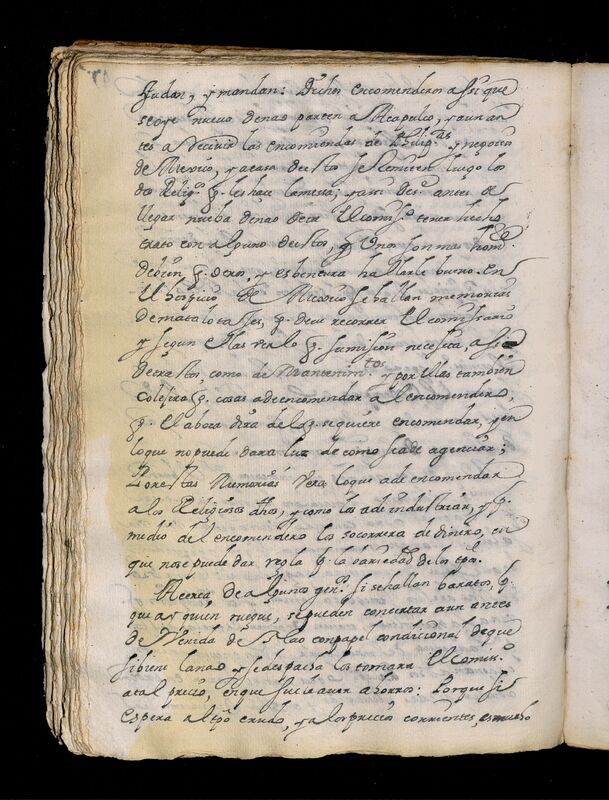 Judan, y mandan: Dichos encomenderos assi que
se oye nuevo de nao parten a Acapulco, y aun an
tes a recivir las encomiendas de Philip.as y negocios
de Mexico, y acasa de estos se remiten luego los
dos Relig.s q. les hace la mesa; y assi des. antes de
llegar nueba de nao deve El comiss.o tener hecho
trato con alguno de estos, q. Unos son mas hom
de bien q. otros, y es bien hallarle bueno. En
El hospicio de Mexico se hallan memorias
de matalotasses, q. deve recorrer El comissario
y segun ellas ver lo q. su mision necesita, assi
de trastos, como de Mantenim.tos y por ellas tambien
q. cosas a de encomendar al encomendero,
q. El ahora dira de lo q. se quiere encomendar, y en
lo que no puede dara luz de como se a de agenciar;
Por estas Memorias vera lo que a de encomendar
a los Religiosos dhos, y como los a de industriar, y p.
medio del encomendero los socorrera de dinero, en
que no se puede dar regla p. la variedad de los tpõs.
Acerca de algunos gen.s si se hallan baratos, q.
que ay quien ruegue, se pueden concertar aun antes
de Venida de Nao con papel condicional de que
si biene la nao y se despacha los tomara El comiss.o
a tal precio, en que suele aver ahorro: Porque si se
espera al tpõ crudo, y a los precios corrientes, es mucho